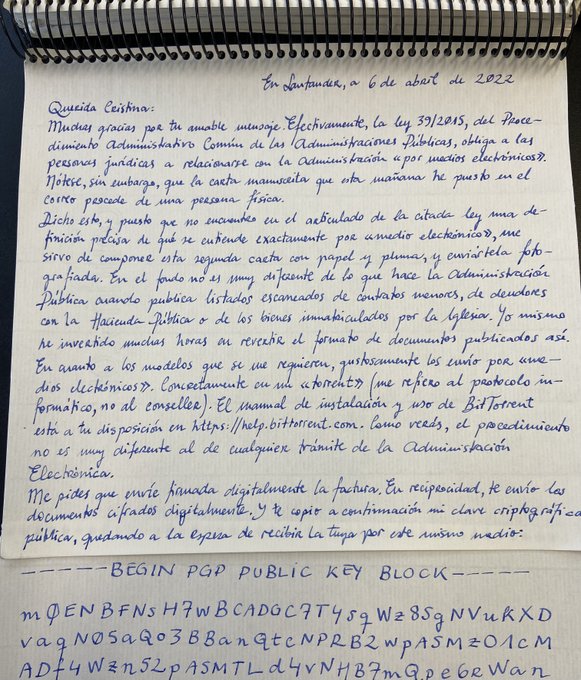 En Santander, a 6 de abril de 2022
Querida Cristina:
Muchas gracias por tu amable mensaje. Efectivamente, la ley 39/2015, del Proce-
dimiento Administrativo Común de las Administraciones Públicas, obliga a las
personas jurídicas a relacionarse con la Administración «por medios electrónicos».
Nótese, sin embargo, que la carta manuscrita que esta mañana he puesto en el
correo procede de una persona física.
Dicho esto, y puesto que no encuentro en el articulado de la citada ley una de-
finición precisa de qué se entiende exactamente por «medio electrónico», me
sirvo de componer esta segunda carta con papel y pluma, y enviártela foto-
grafiada. En el fondo no es muy diferente de lo que hace la Administración
Pública cuando publica listados escaneados de contratos menores, de deudores
con la Hacienda Pública o de los bienes inmatriculados por la Iglesia. Yo mismo
he invertido muchas horas en revertir el formato de documentos publicados así.
En cuanto a los modelos que se me requieren, gustosamente los envío por «me-
dios electrónicos». Concretamente en un «torrent» (me refiero al protocolo in-
formático, no al conseller). El manual de instalación y uso de BitTorrent
está a tu disposición en https://help.bittorrent.com. Como verás, el procedimiento
no es muy diferente al de cualquier trámite de la Administración
Electrónica.
Me pides que envíe firmada digitalmente la factura. En reciprocidad, te envío los
documentos cifrados digitalmente. Y te copio a continuación mi clave criptográfica
pública, quedando a la espera de recibir la tuya por este mismo medio:
-----BEGIN PGP PUBLIC KEY BLOCK-----
mQENBFNsH7wBCADGC7T4sqWz8SgNVuKXD
vaqN0SaQo3BBanQtcNPRB2wpASMzO1cM
ADf4Wzn52pASMTLd4vNHB7mQpe6RWan